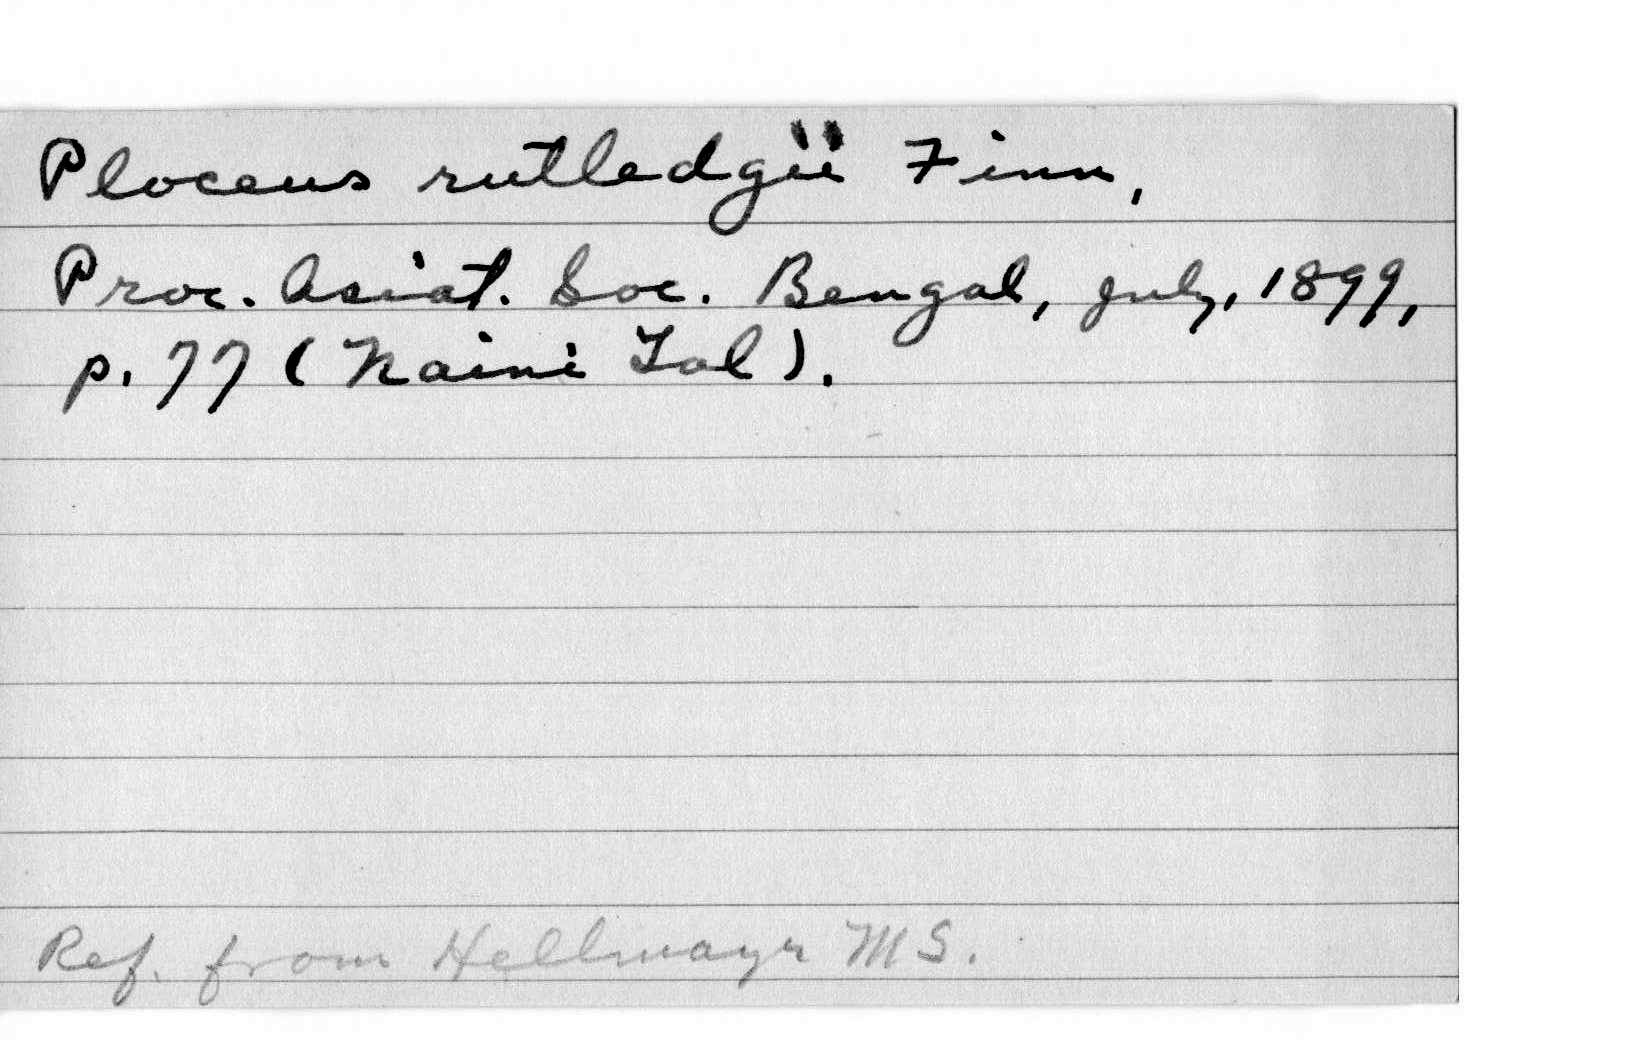 Ploceus rutledgii Finn,
Proc. Asiat. Soc. Bengal, July, 1899,
p. 77 (Naini Tal).
Ref. from Hellmayr MS.